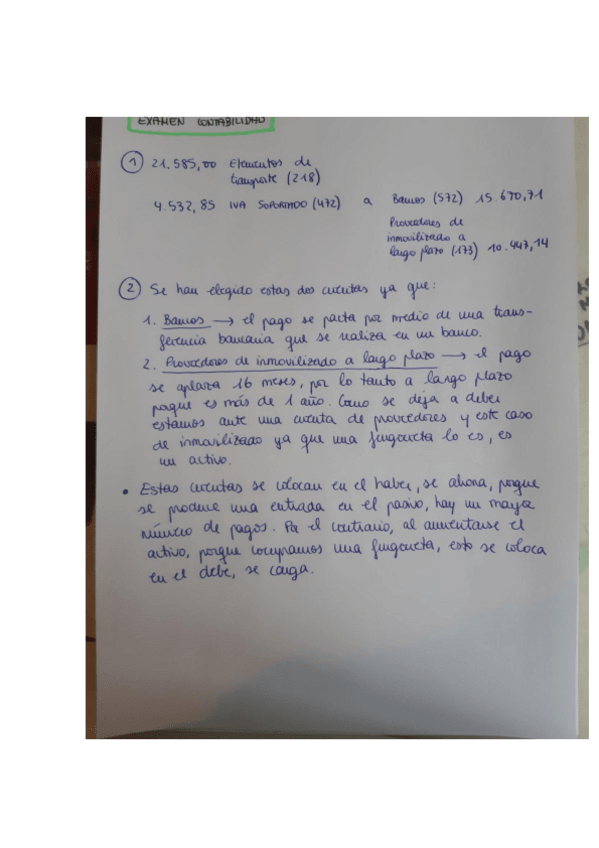 EXAMEN CONTABILIDAD
1 21.585,00 Elementos de
transporte (218)
4.532,85 IVA SOPORTADO (472) a Bancos (572) 15.670,71
Proveedores de
inmovilizado a
largo plazo (173) 10.447,14
2 Se han elegido estas dos cuentas ya que:
1. Bancos → el pago se pacta por medio de una trans-
ferencia bancaria que se realiza en un banco.
2. Proveedores de inmovilizado a largo plazo → el pago
se aplaza 16 meses, por lo tanto a largo plazo
porque es más de 1 año. Como se deja a deber
estamos ante una cuenta de proveedores y este caso
de inmovilizado ya que una furgoneta lo es, es
un activo.
• Estas cuentas se colocan en el haber, se abona, porque
se produce una entrada en el pasivo, hay un mayor
número de pagos. Por el contrario, al aumentarse el
activo, porque compramos una furgoneta, esto se coloca
en el debe, se carga.